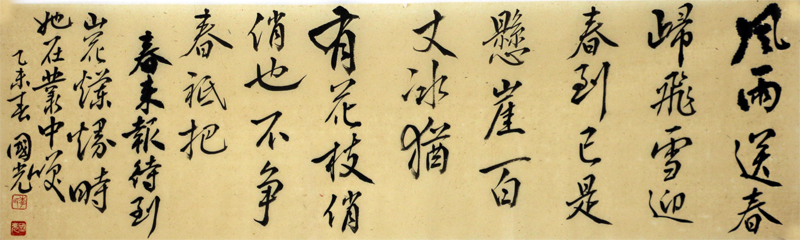 風雨送春
歸飛雪迎
春到已是
懸崖百
丈冰猶
有花枝俏
俏也不争
春祗把
春来報待到
山花爛熳時
她在叢中笑
乙未春國光